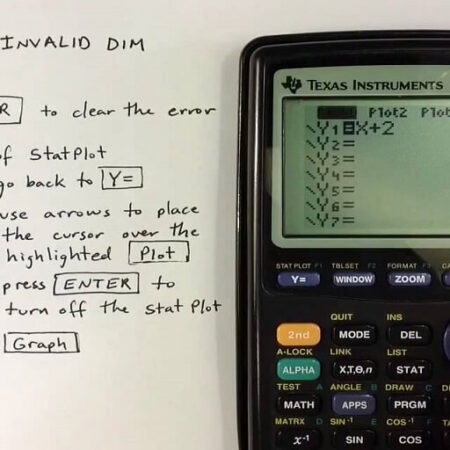 INVALID DIM
to clear the error
of StatPlot
go back to Y=
use arrows to place
the cursor over the
highlighted Plot
press ENTER to
turn off the Stat Plot
Graph
TEXAS INSTRUMENTS
Plot2
\Y1=X+2
\Y2=
\Y3=
\Y4=
\Y5=
\Y6=
\Y7=
STAT PLOT F1 TBLSET F2 FORMAT F3
Y= WINDOW ZOOM
QUIT INS
2nd MODE DEL
A-LOCK LINK LIST
ALPHA X,T,Θ,n STAT
TEST A ANGLE B DRAW C
MATH APPS PRGM
MATRX D SIN-1 E COS-1 F
x-1 SIN COS